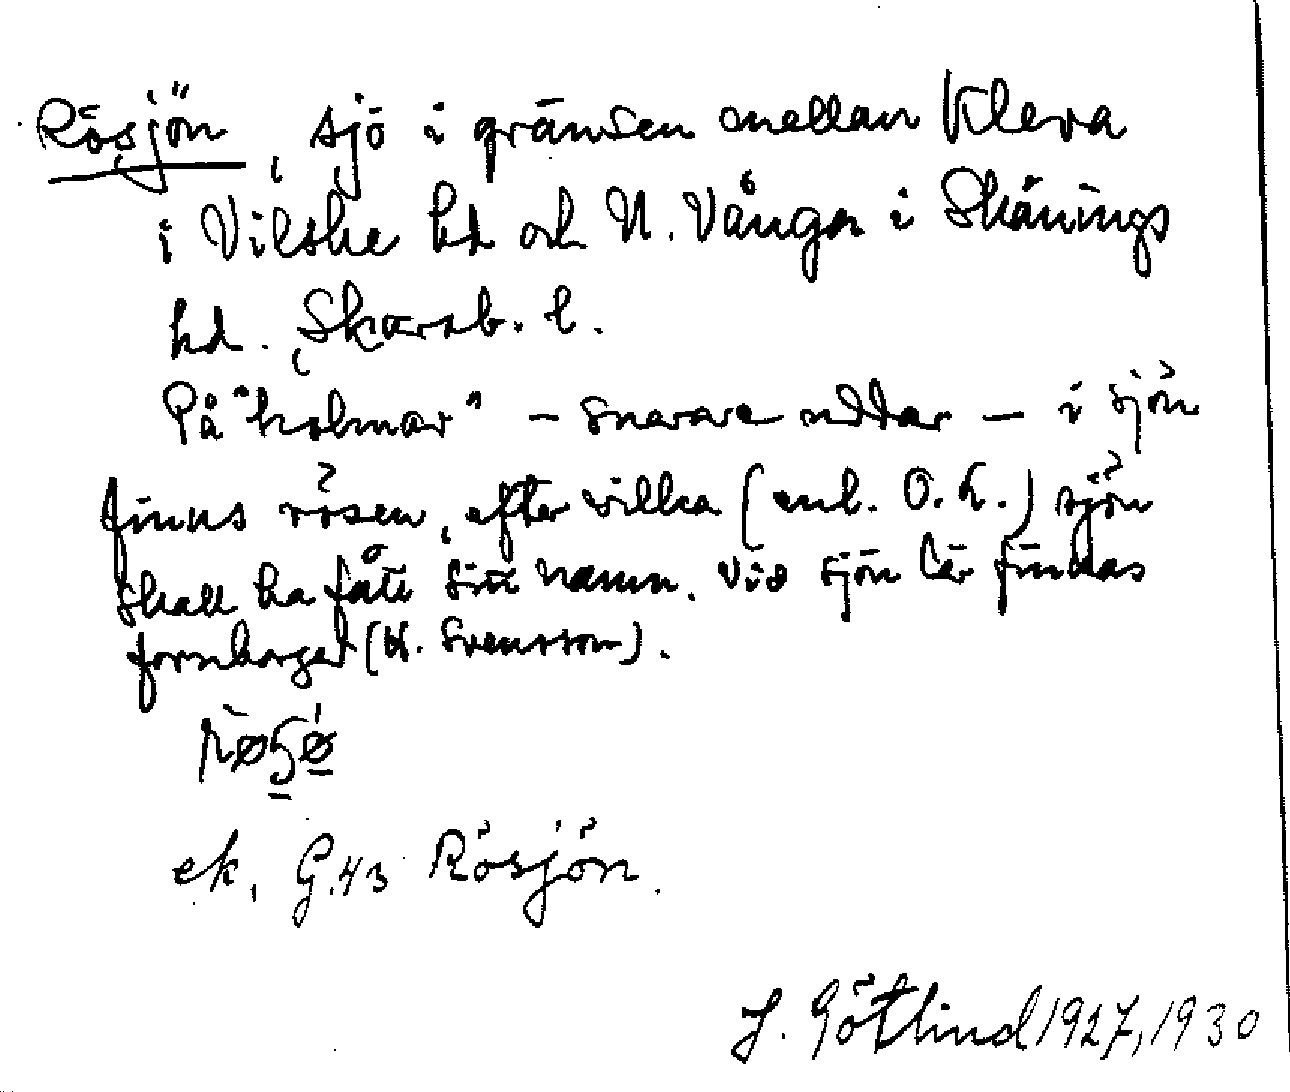 Rösjön, sjö i gränsen mellan Kleva
i Vilske hd och N. Vånga i Skånings
hd. Skarab. l.
På "holmar" – snarare uddar – i sjön
finns rösen, efter vilka (enl. O. L.) sjön
skall ha fått sitt namn. Vid sjön lär finnas
fornborgar (K. Svensson).
ek. G.43 Rösjön.
J. Götlind 1927, 1930